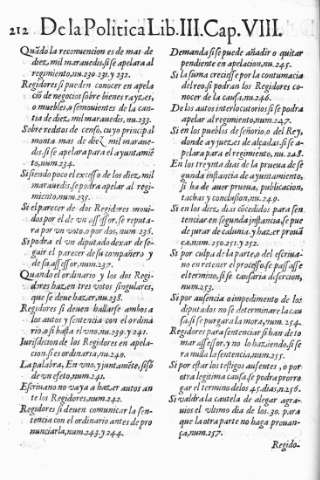 212 De la Politica Lib. III. Cap. VIII.
Quãdo la reconuencion es de mas de
diez mil marauedis, si se apelara al
regimiento, nu. 230. 231. y 232.
Regidores si pueden conocer en apela
ciõ de negocios sobre bienes rayzes,
o muebles, o semouientes de la can-
tia de diez mil marauedis, nu. 233.
Sobre reditos de censo, cuyo principal
monta mas de diez mil maraue-
dis, si se apelara para el ayuntamiẽ
to, num. 234.
Siẽdo poco el excesso de los diez mil
marauedis, se podra apelar al regi-
miento, num. 235.
Si el parecer de dos Regidores moui-
dos por el de vn assessor, se reputa-
ra por vn voto, o por dos, num 236.
Si podra el vn diputado dexar de se-
guir el parecer de su compañero y
de su assessor, num. 237.
Quando el ordinario y los dos Regi-
dores hazen tres votos singulares,
que se deue hazer, nu. 238.
Regidores si deuen hallarse ambos a
los autos y sentencia con el ordina
rio, o si basta el vno, nu. 239. y 241.
Iurisdicion de los Regidores en apela-
cion, si es ordinaria, nu. 240.
La palabra, En vno, y juntamẽte, si sõ
de vn efeto, num. 241.
Escriuano no vaya a hazer autos an
te los Regidores, num. 242.
Regidores si deuen comunicar la sen-
tencia con el ordinario antes de pro
nunciarla, num. 243. y 244.
Demanda si se puede añadir o quitar
pendiente en apelacion, nu. 245.
Si la suma creciesse por la contumacia
del reo, si podran los Regidores co-
nocer de la causa, nu. 246.
De los autos interlocutorios si se podra
apelar al regimiento, num. 247.
Si en los pueblos de señorio, o del Rey,
donde ay juezes de alçadas, si se a-
pelara para el regimiento, nu. 248.
En los treynta dias de la prueua de se
gunda instancia de ayuntamiento,
si ha de auer prueua, publicacion,
tachas y conclusion, nu. 249.
Si en los diez dias cõcedidos para sen-
tenciar en segunda instancia, se pue
de jurar de calunia, y hazer proua
ça, num. 250. 251. y 252.
Si por culpa de la parte, o del escriua-
no en retener el processo, se passasse
el termino, si se causaria desercion,
num. 253.
Si por ausencia o impedimento de los
diputados no se determinare la cau
sa, si se purgara la mora, num. 254.
Regidores para sentenciar si han de to
mar assessor, y no lo haziendo, si se
ra nula la sentencia, num. 255.
Si por estar los testigos ausentes, o por
otra legitima causa, se podra proro
gar el termino de los 45. dias, n. 256.
Si valdra la cautela de alegar agra-
uios el vltimo dia de los 30. para
que la otra parte no haga prouan-
ça, num. 257.
Regido-